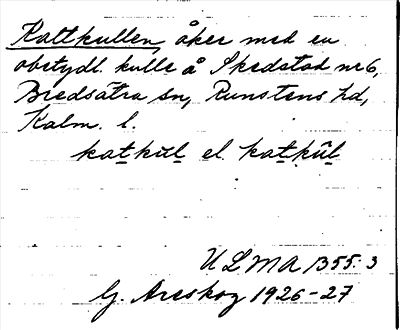 Kattkullen, åker med en
obetydl. kulle å Skedstad nr 6,
Bredsätra sn, Runstens hd,
Kalm. l.
katkul el. katkul
ULMA 1355:3
G. Areskog 1926-27